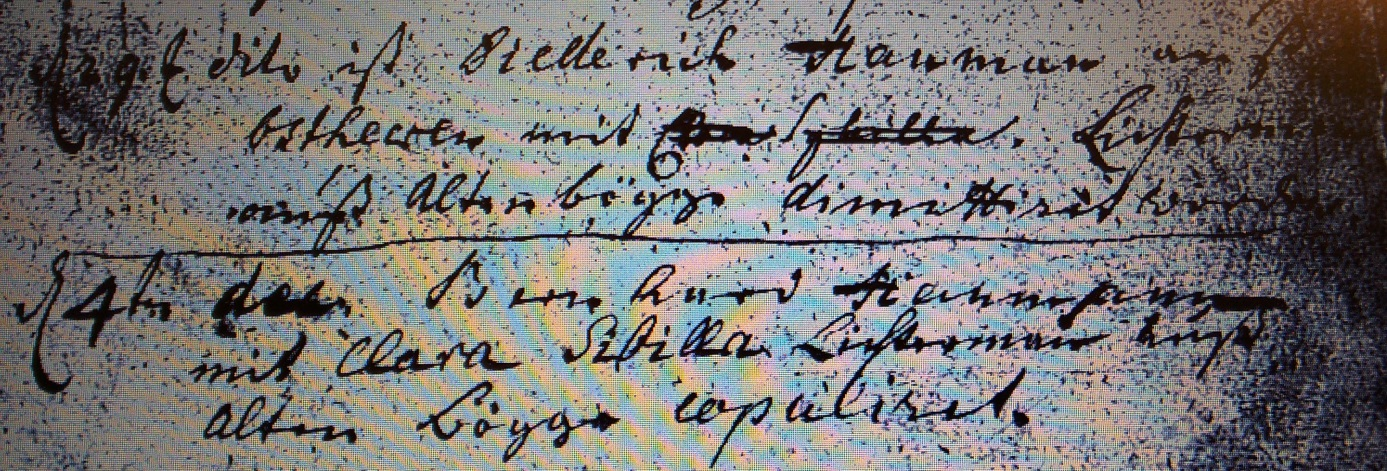 dito ist Diederich Hauman auß
ostheeren mit Sybilla. Lichterman
auß Altenbögge dimittiret worden
4tn dec. Bernhard Haumann
mit Clara Sibilla Lichterman auß
Alten Bögge copuliret.